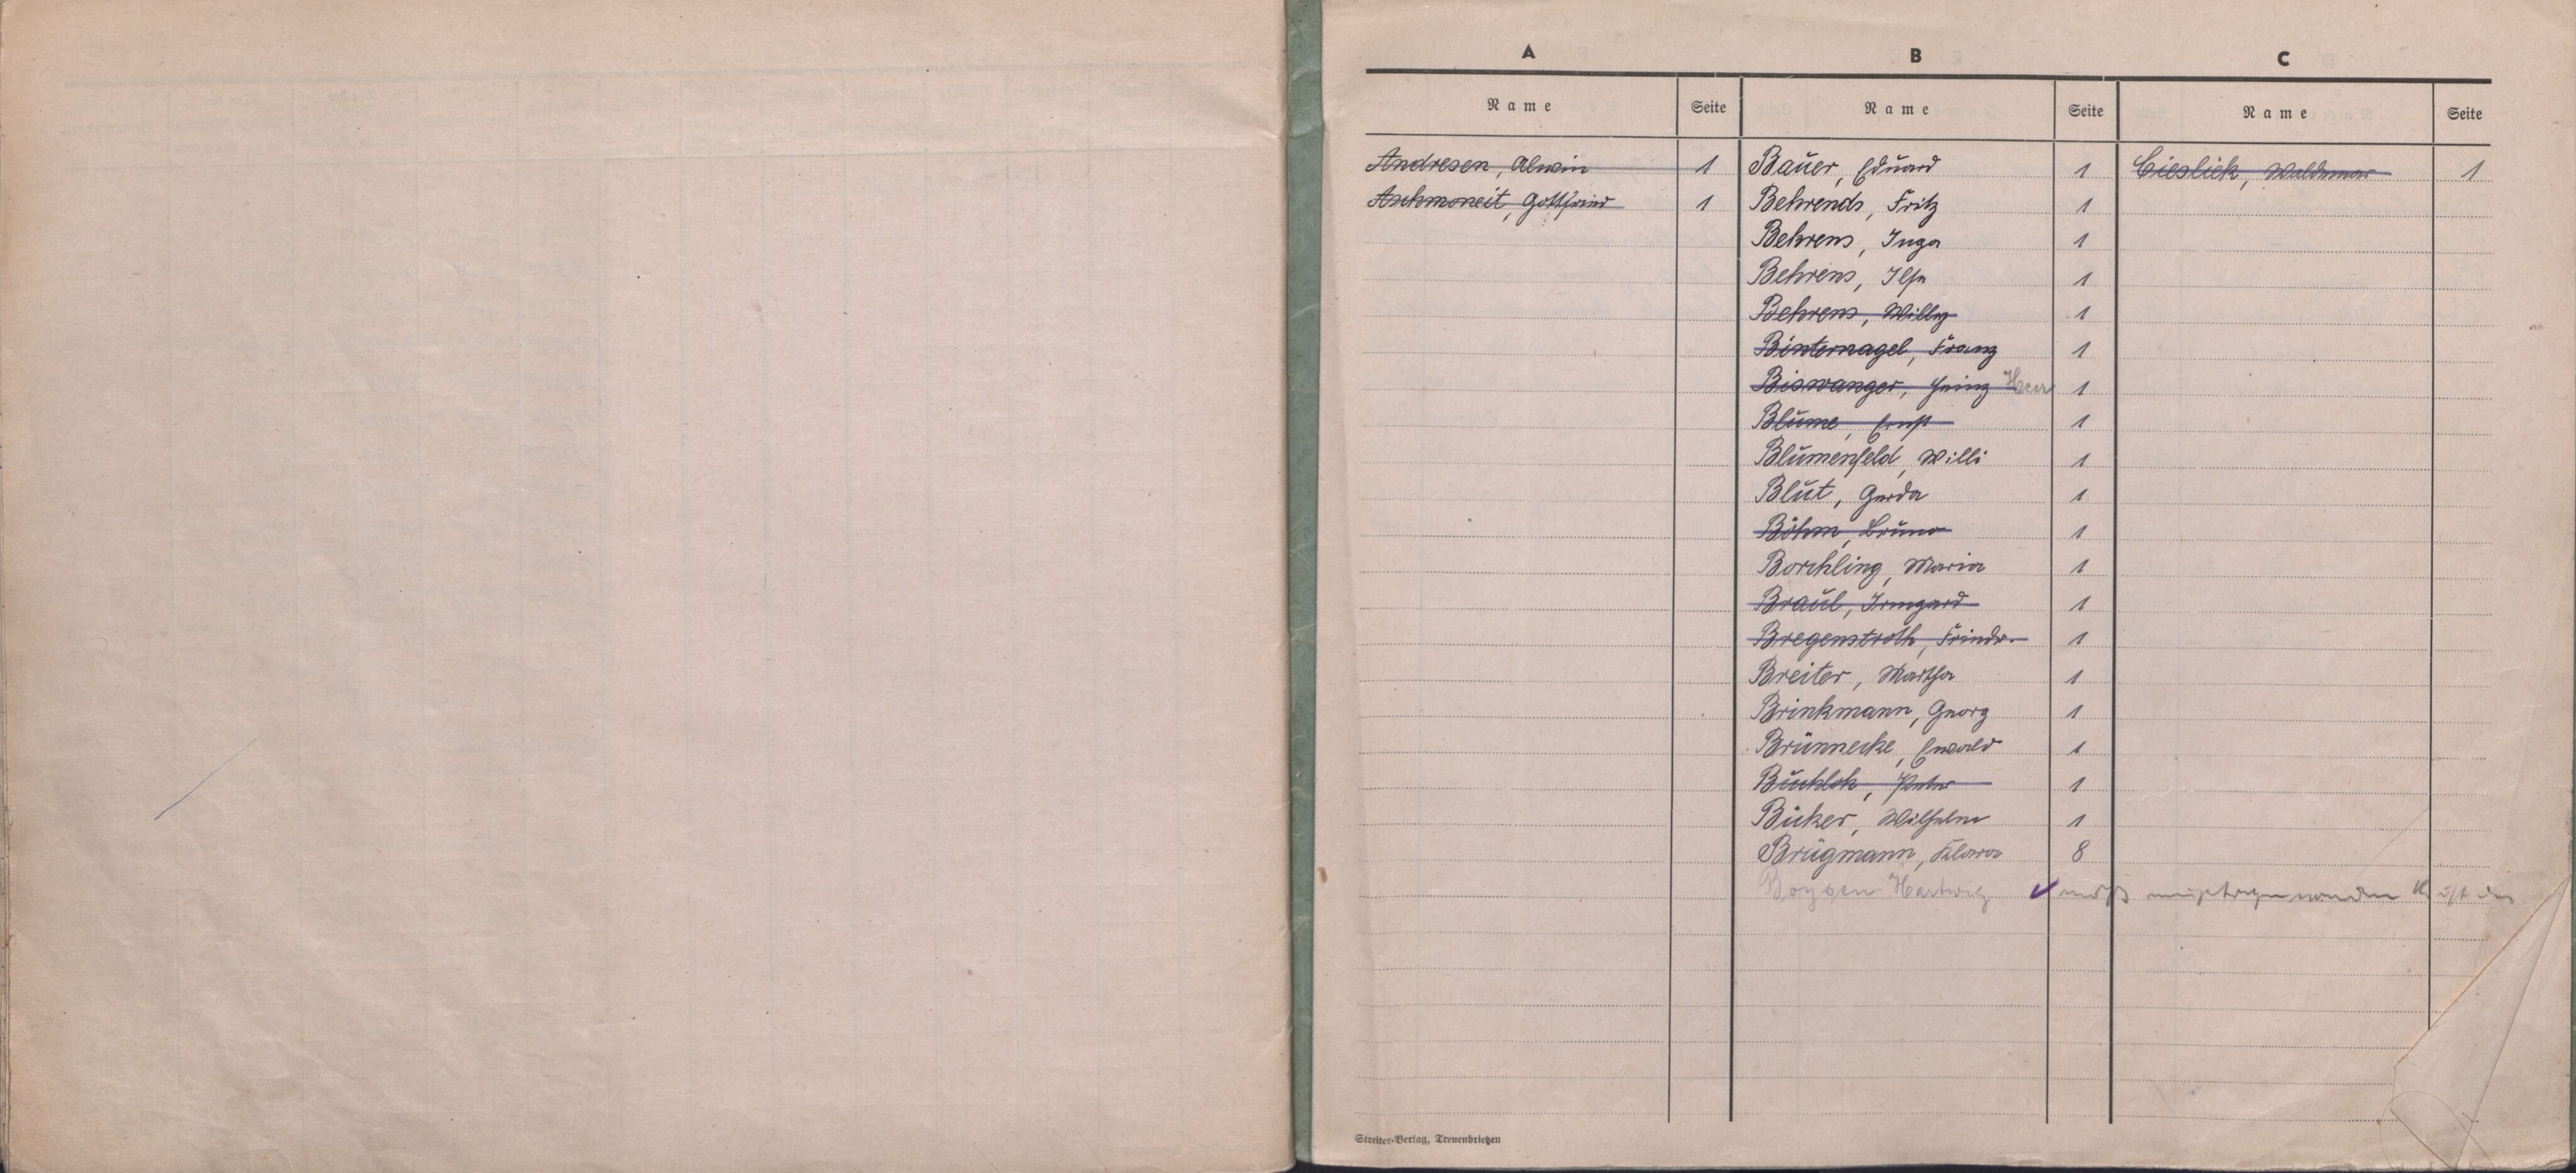 A B C
Name Seite Name Seite Name Seite
Andresen, Alwin 1 Bauer, Eduard 1 Cieslick, Waldemar 1
Aschmoneit, Gottfried 1 Behrends, Fritz 1
Behrens, Inga 1
Behrens, Ilse 1
Behrens, Willy 1
Binternagel, Franz 1
Biswanger, Heinz Heer 1
Blume, Ernst 1
Blumenfeld, Willi 1
Blut, Gerda 1
Böhm, Bruno 1
Borchling, Maria 1
Braul, Irmgard 1
Bregenstroth, Friedr. 1
Breiter, Martha 1
Brinkmann, Georg 1
Brünnecke, Ewald 1
Buchloh, Peter 1
Bücker, Wilhelm 1
Brügmann, Klara 8
Boysen Hartwig ✓ muß werden ist
Streiter-Verlag, Treuenbrietzen